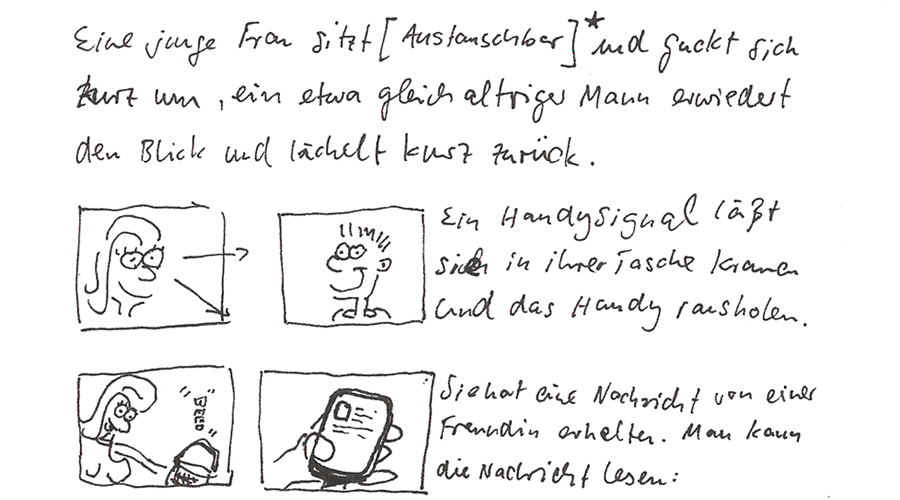 Eine junge Frau sitzt [Austauschbar]* und guckt sich
kurz um, ein etwa gleichaltriger Mann erwiedert
den Blick und lächelt kurz zurück.
Ein Handysignal läßt
sie in ihrer Tasche kramen
und das Handy rausholen.
"BEEP"
Sie hat eine Nachricht von einer
Freundin erhalten. Man kann
die Nachricht lesen: